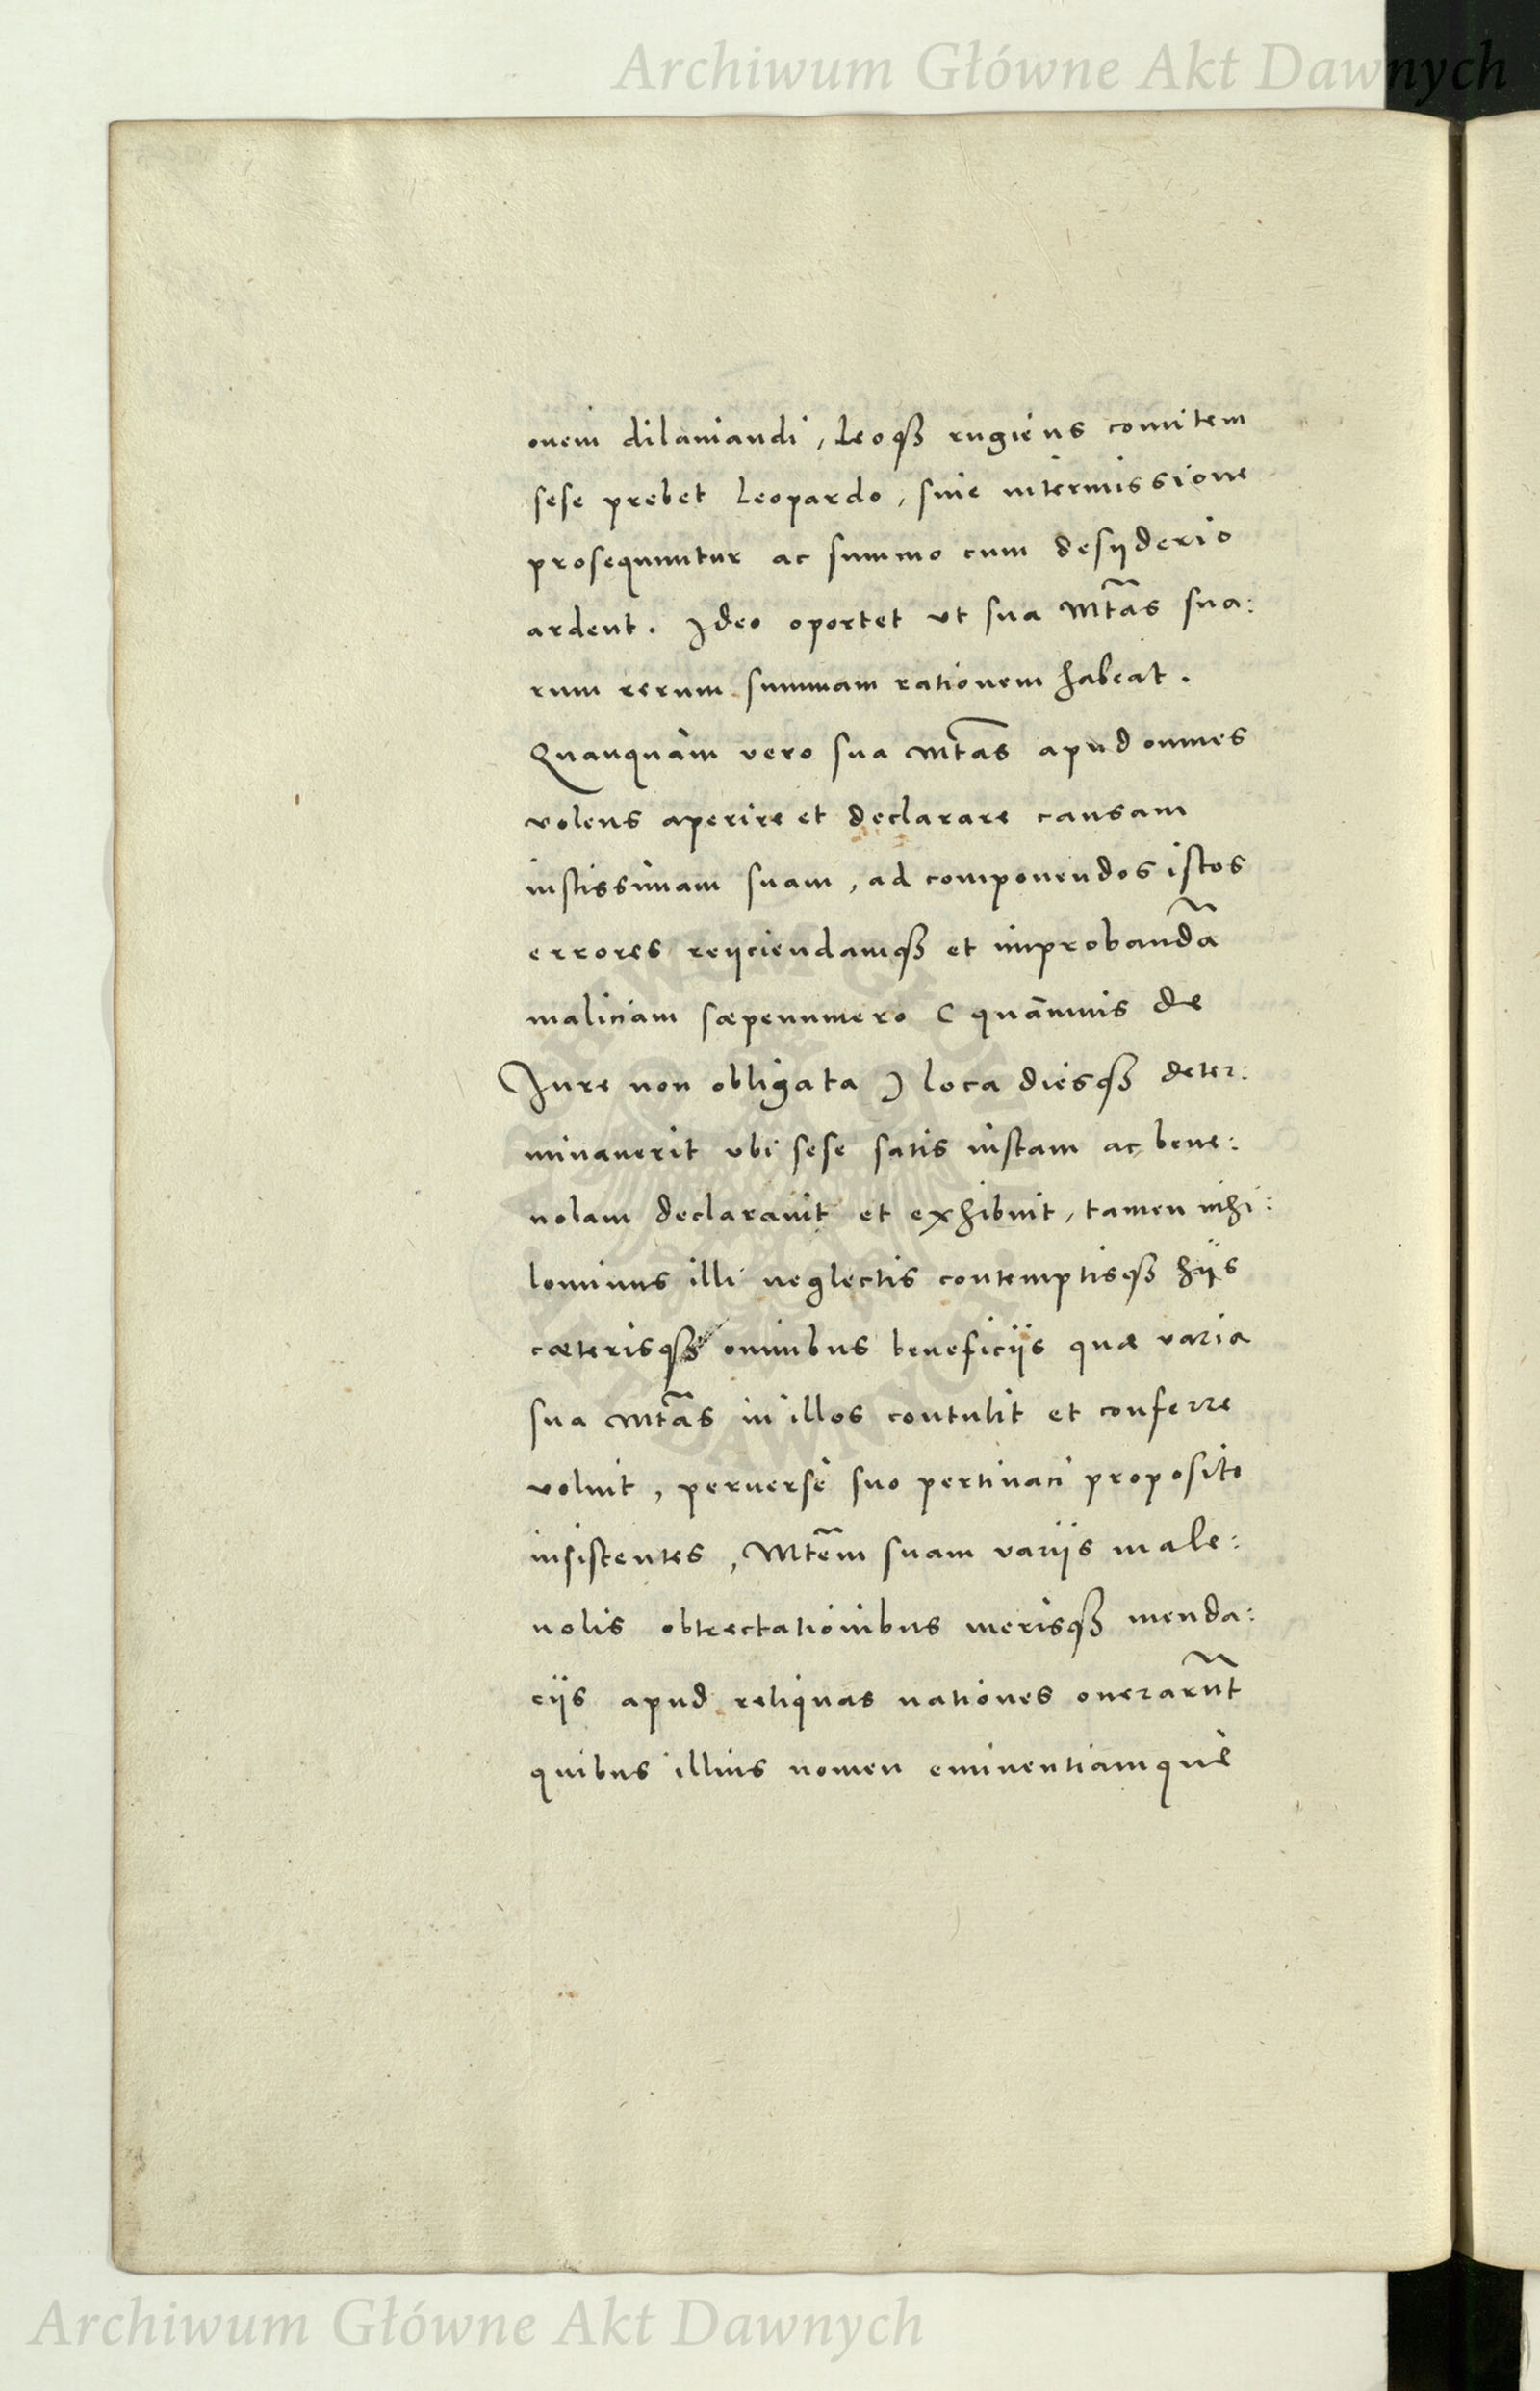 Archiwum Główne Akt Dawnych
ouem dilaniandi, Leoqȝ rugiens comitem
sese prebet Leopardo, sine intermissione
prosequuntur ac summo cum desyderio
ardent. Ideo oportet vt sua Mtãs sua:
rum rerum summam rationem habeat.
Quanquàm vero sua Mtãs apud omnes
volens aperire et declarare causam
iustissimam suam, ad componendos istos
errores reijciendamqȝ et improbandã
maliciam sæpenumero ( quãmuis de
Jure non obligata ) loca diesqȝ deter:
minauerit vbi sese satis iustam ac bene:
uolam declarauit et exhibuit, tamen nihi:
lominus illi neglectis contemptisqȝ hijs
cæterisqȝ omnibus beneficijs quæ varia
sua Mtãs in illos contulit et conferre
voluit, peruersè suo pertinaci proposito
insistentes, Mtẽm suam varijs male:
uolis obtrectationibus merisqȝ menda:
cijs apud reliquas nationes onerarũt
quibus illius nomen eminentiamquè
Archiwum Główne Akt Dawnych